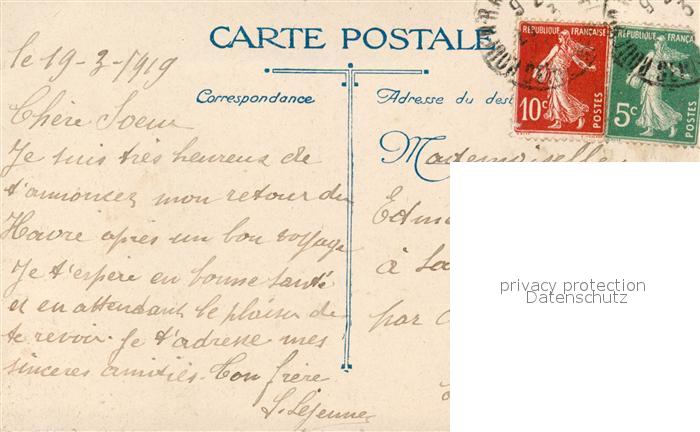 CARTE POSTALE
Correspondance
Adresse du dest
RÉPUBLIQUE FRANÇAISE
10c
POSTES
RÉPUBLIQUE FRANÇAISE
5c
POSTES
le 19-3-1919
Chère Soeur
Je suis très heureux de
t'annoncer mon retour du
Havre après un bon voyage
Je t'espère en bonne santé
et en attendant le plaisir de
te revoir. Je t'adresse mes
sincères amitiés. Ton frère
L. Lejeune
Mademoiselle
Edm
à La
par
privacy protection
Datenschutz